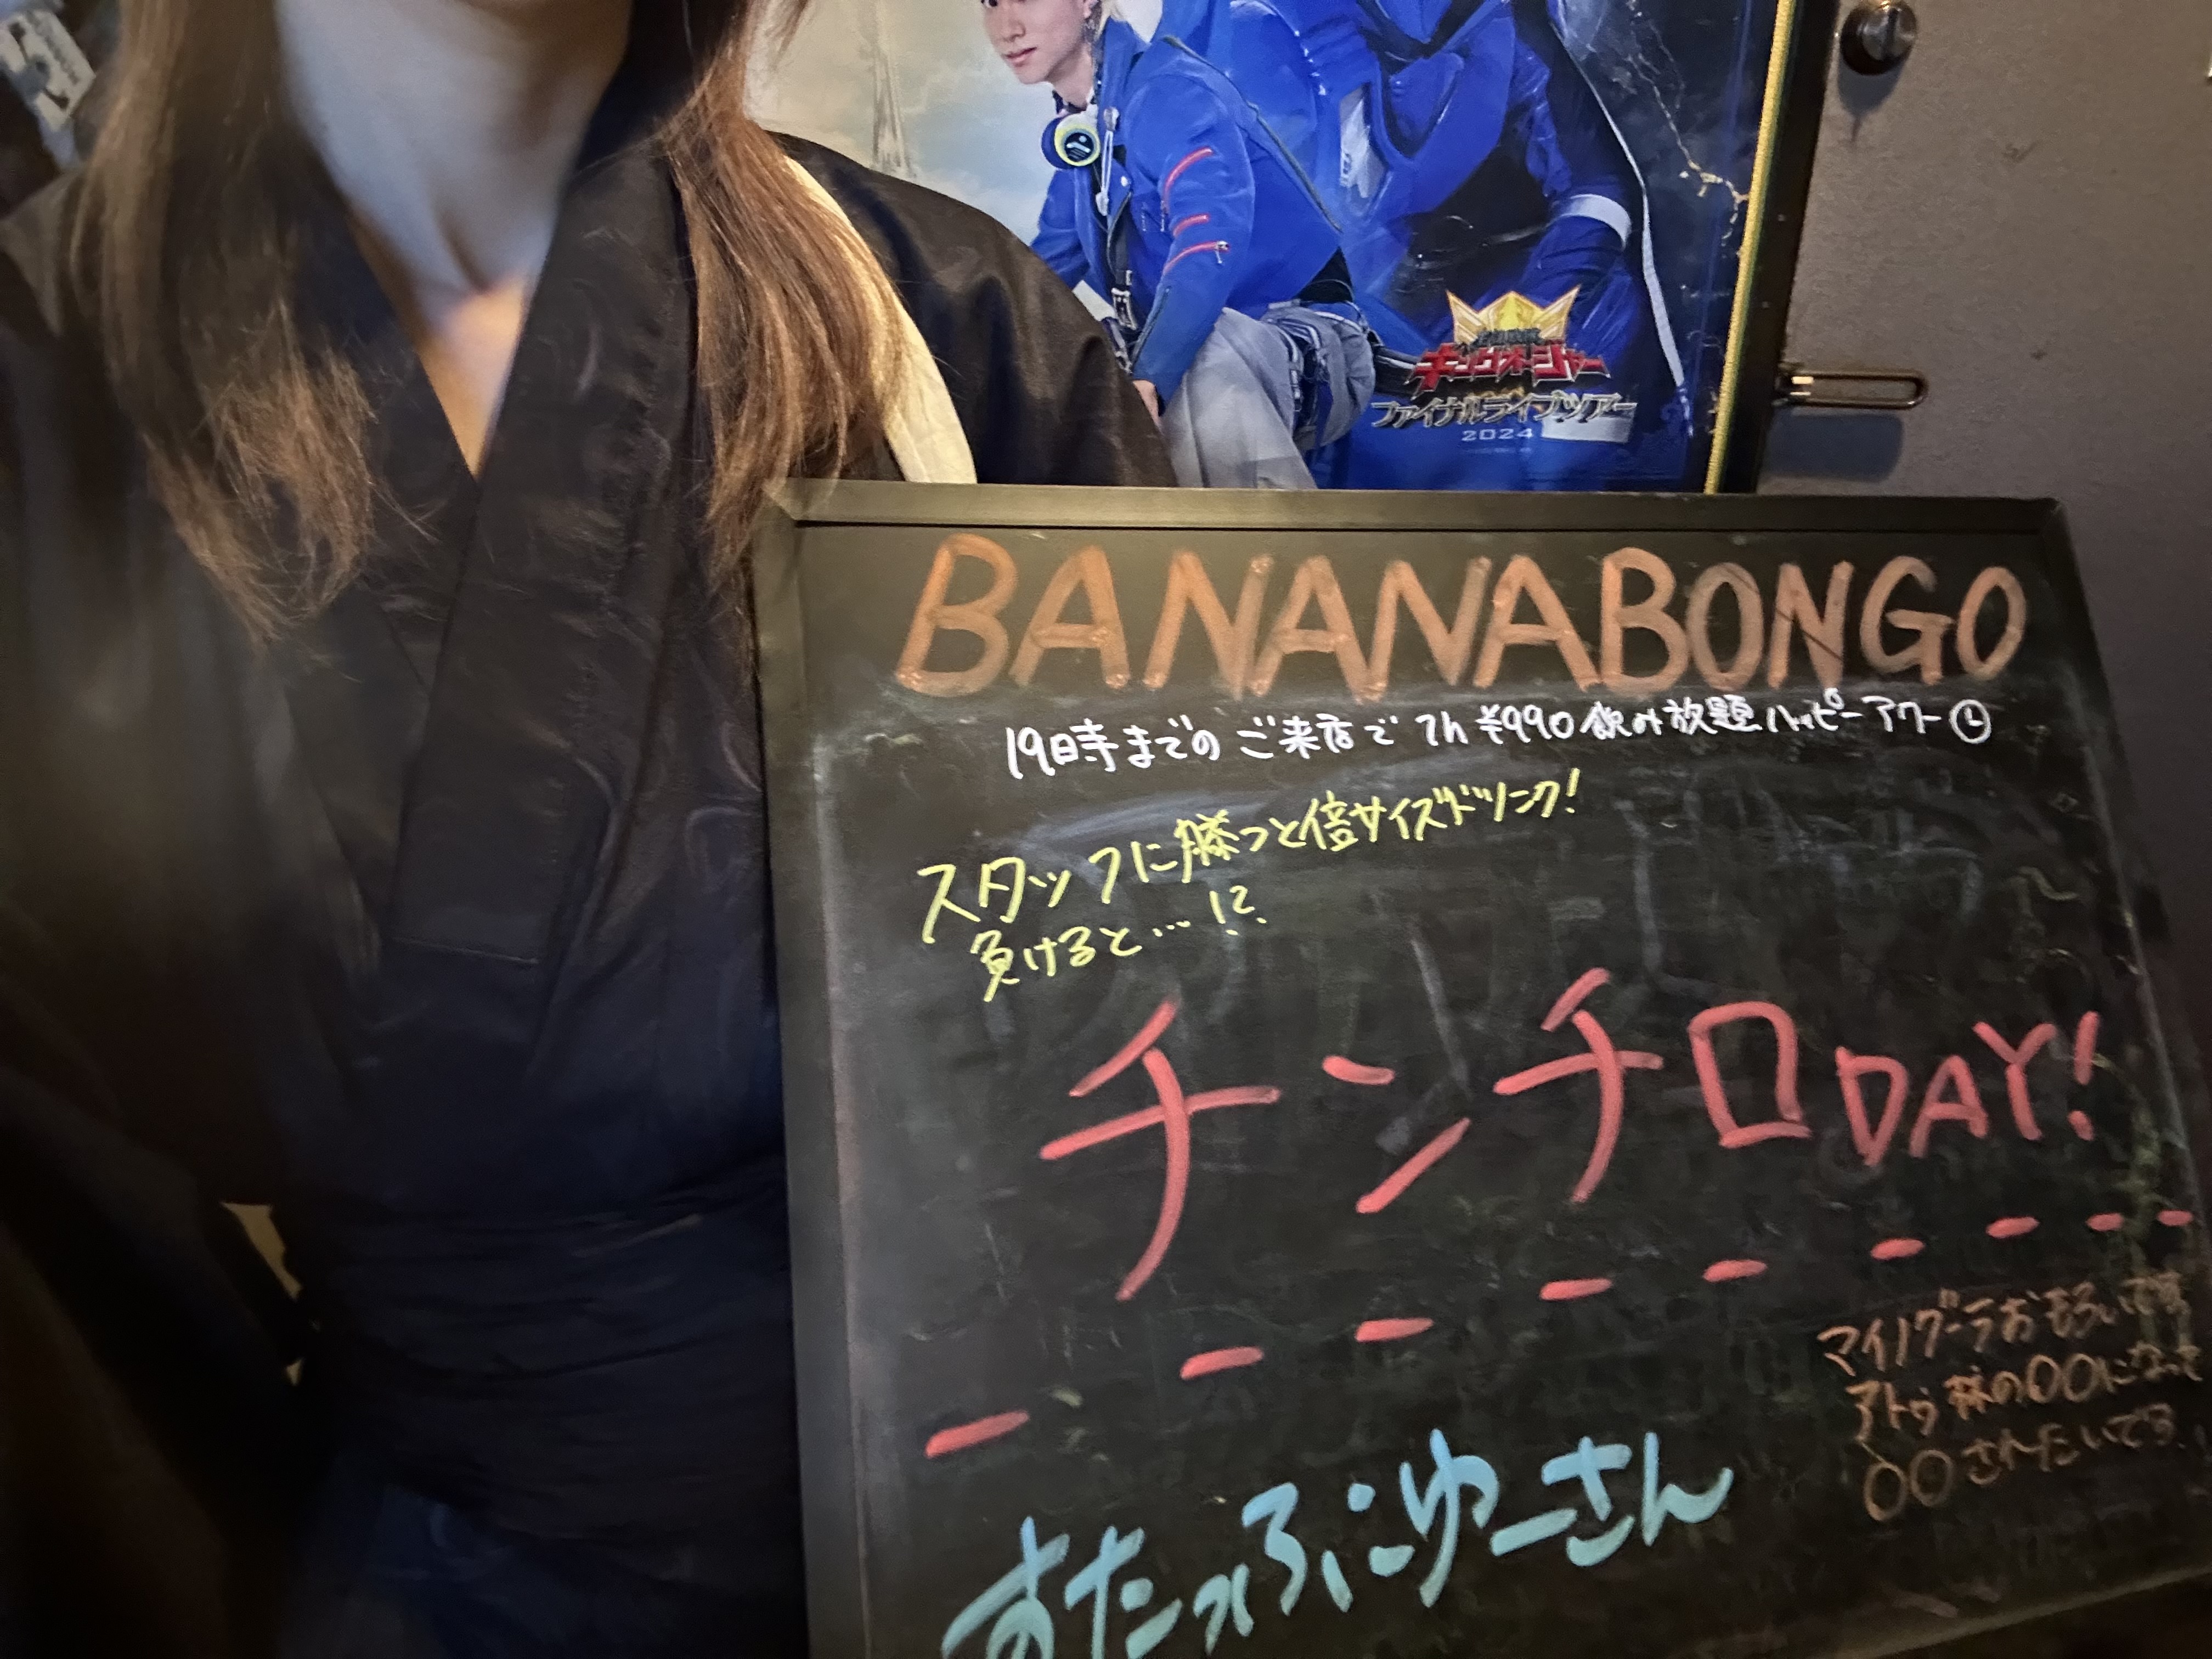 キングオージャー
ファイナルライブツアー
2024
BANANABONGO
19時までのご来店で 1h ¥990 飲み放題ハッピーアワー
スタッフに勝つと倍サイズドリンク!
負けると…!?
チンチロDAY!
マイノグーラおもろいです
アトゥ様の〇〇になって
〇〇されたいです
すたっふにゆーさん